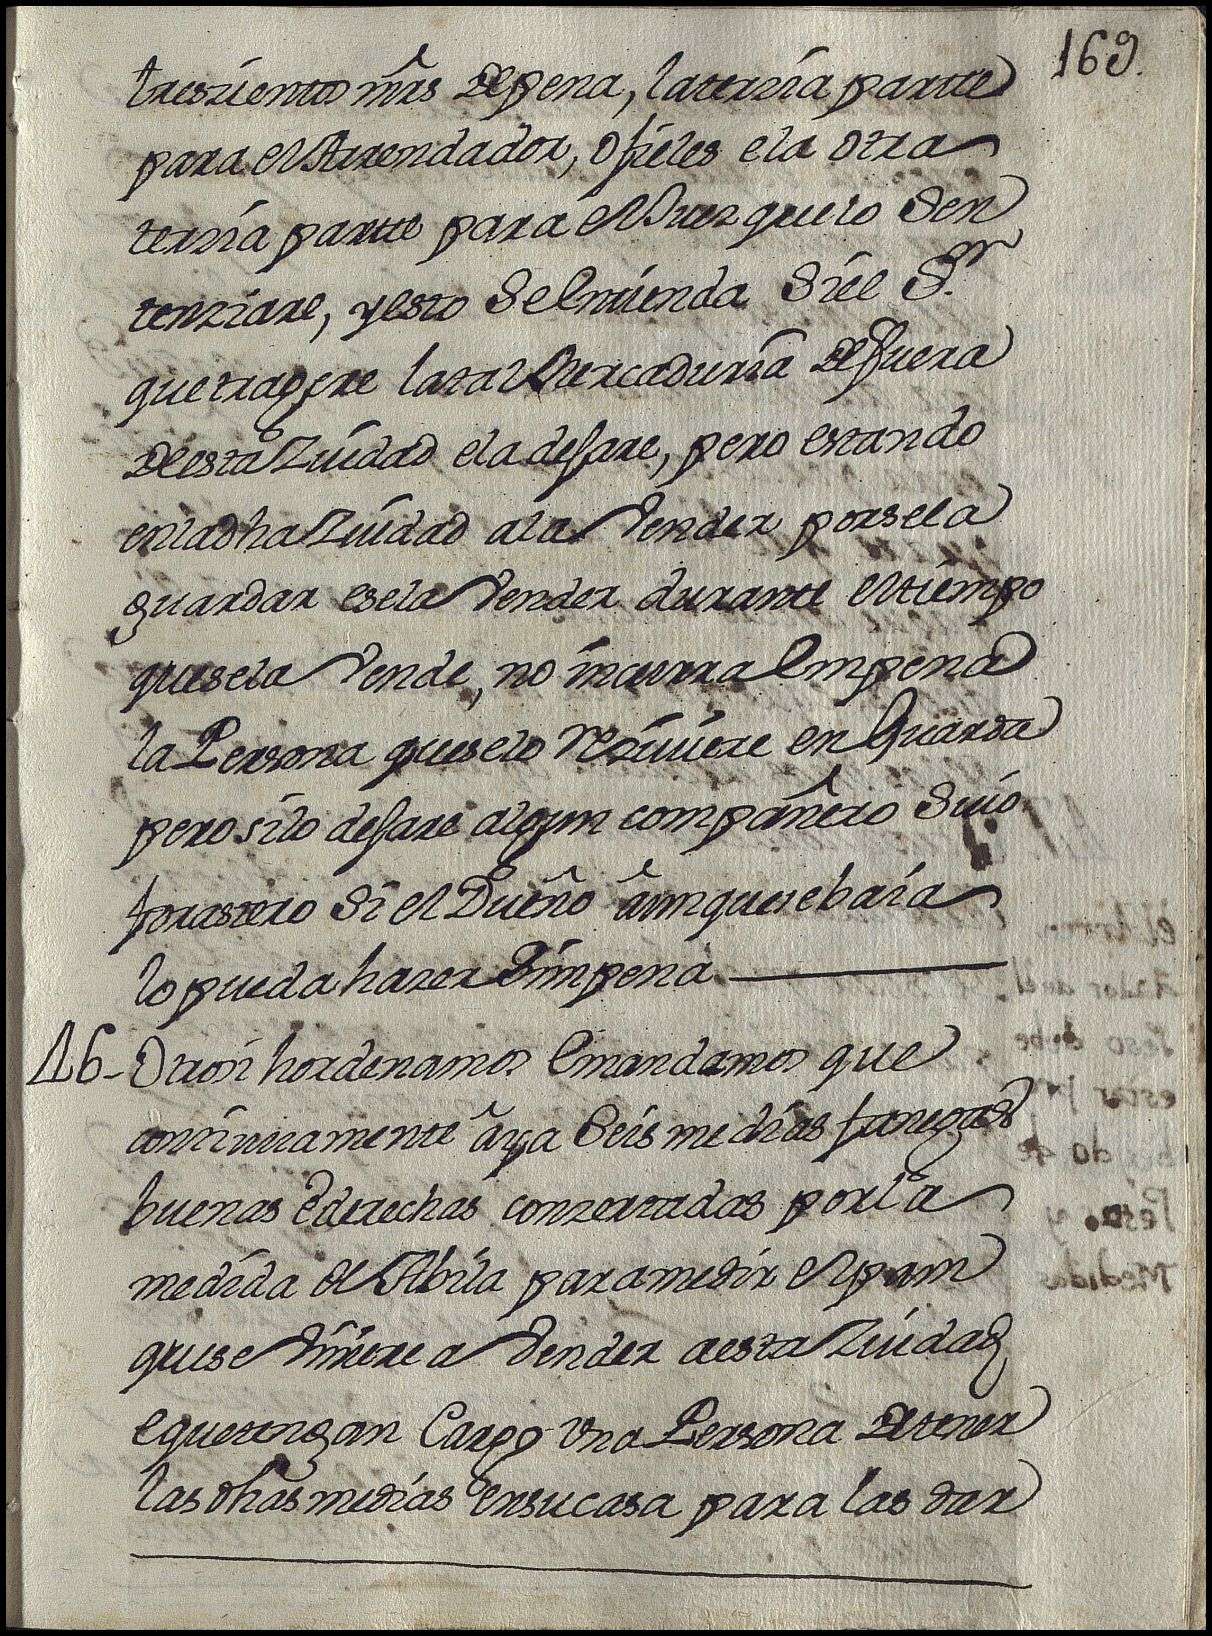 169.
treszientos mrs de pena, la terzia partte
para el Arrendador, o fieles e la otra
terzia partte para el Juez que lo Sen
tenziare, y esto Se Entienda Si el S.r
que tragere la tal Mercaduria de fuera
de esta Ziudad e la desare, pero estando
en la dha Ziudad a la Vender por se la
guardar e se la Vender durante el tiempo
que se la Vende, no incurra Em pena
la Persona que se lo reziuiere en Guarda
pero si lo desare algum compañero Suio
forastero Si el Dueño aunque se baia
lo pueda hazer Sim pena
16- Otrosi hordenamos E mandamos que
continuamente aya Seis medias fanegas
buenas e derechas conzertadas por la
medida de Abila para medir el pam
que se Viniere a Vender a esta Ziudad
e que tengan Cargo Vna Persona de tener
las dhas medias en su casa para las dar